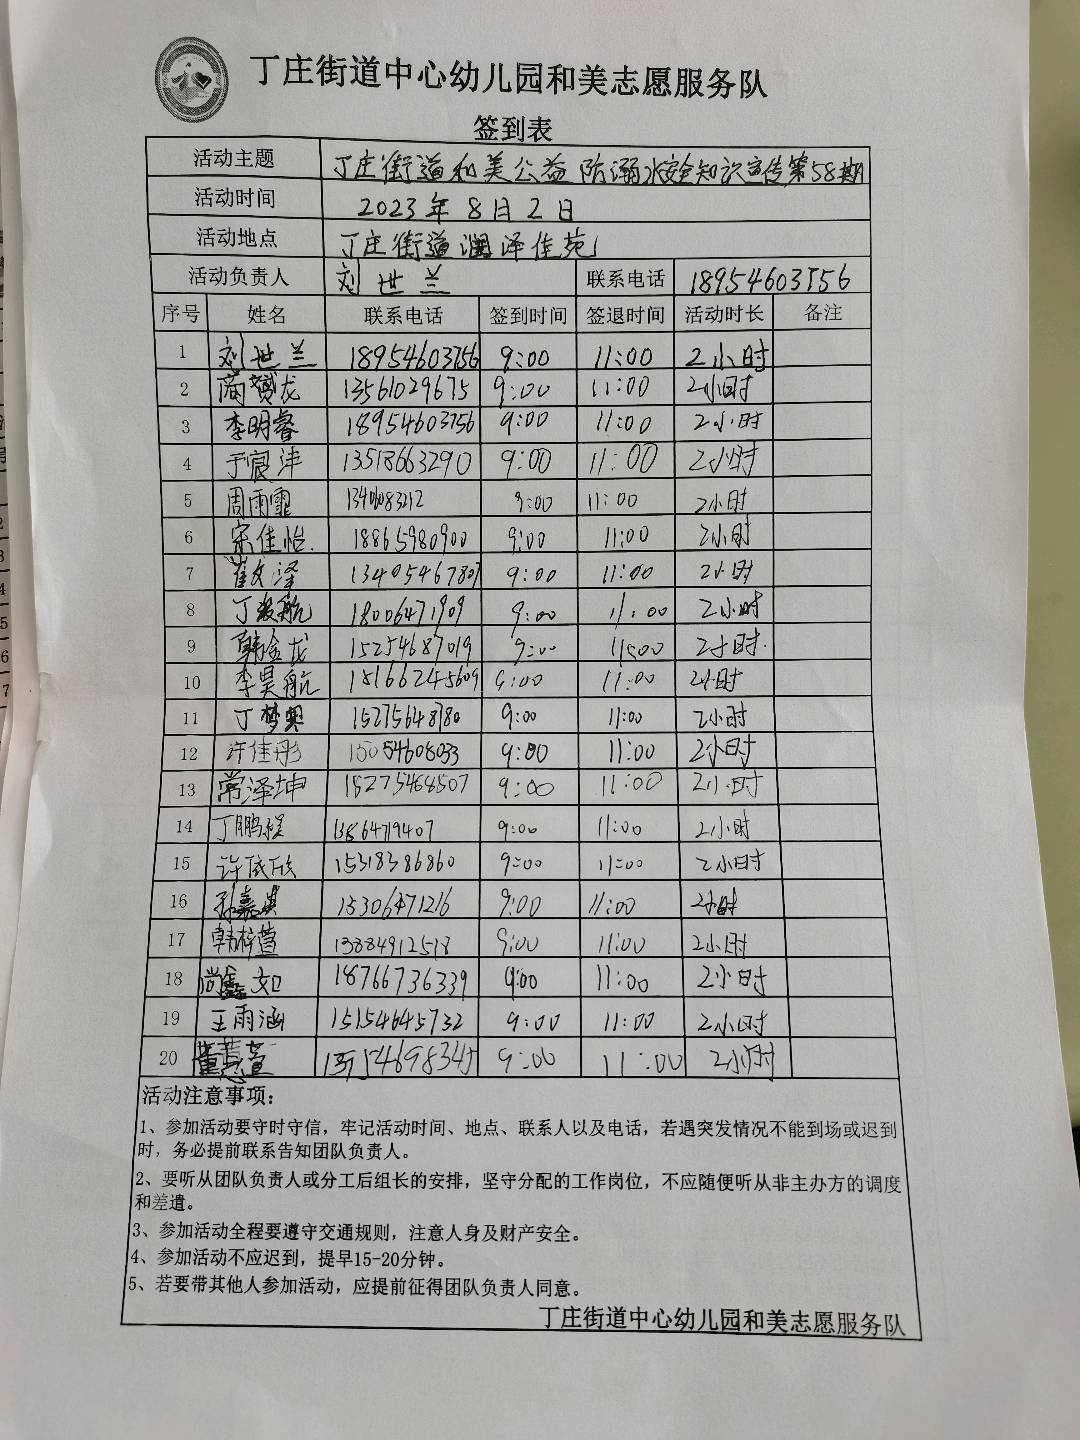 丁庄街道中心幼儿园和美志愿服务队
签到表
活动主题 丁庄街道和美公益防溺水安全知识宣传第58期
活动时间 2023年8月2日
活动地点 丁庄街道润泽佳苑
活动负责人 刘世兰 联系电话 18954603756
序号 姓名 联系电话 签到时间 签退时间 活动时长 备注
1 刘世兰 18954603756 9:00 11:00 2小时
2 龙 13561029675 9:00 11:00 2小时
3 李明睿 18954603756 9:00 11:00 2小时
4 于宸沣 13518663290 9:00 11:00 2小时
5 周雨霏 9:00 11:00 2小时
6 宋佳怡 18865980900 9:00 11:00 2小时
7 崔文泽 13405467807 9:00 11:00 2小时
8 丁 航 18006471909 9:00 11:00 2小时
9 韩金龙 15254687019 9:00 11:00 2小时
10 李昊航 15166245609 9:00 11:00 2小时
11 丁梦 15275648780 9:00 11:00 2小时
12 许佳彤 15054608033 9:00 11:00 2小时
13 常泽坤 15275468507 9:00 11:00 2小时
14 丁鹏程 13864719407 9:00 11:00 2小时
15 许依欣 15318386860 9:00 11:00 2小时
16 孙嘉淇 15306471216 9:00 11:00 2小时
17 韩梓萱 13884912518 9:00 11:00 2小时
18 尚鑫如 18766736339 9:00 11:00 2小时
19 王雨涵 15154645732 9:00 11:00 2小时
20 董慧萱 9:00 11:00 2小时
活动注意事项：
1、参加活动要守时守信，牢记活动时间、地点、联系人以及电话，若遇突发情况不能到场或迟到
时，务必提前联系告知团队负责人。
2、要听从团队负责人或分工后组长的安排，坚守分配的工作岗位，不应随便听从非主办方的调度
和差遣。
3、参加活动全程要遵守交通规则，注意人身及财产安全。
4、参加活动不应迟到，提早15-20分钟。
5、若要带其他人参加活动，应提前征得团队负责人同意。
丁庄街道中心幼儿园和美志愿服务队